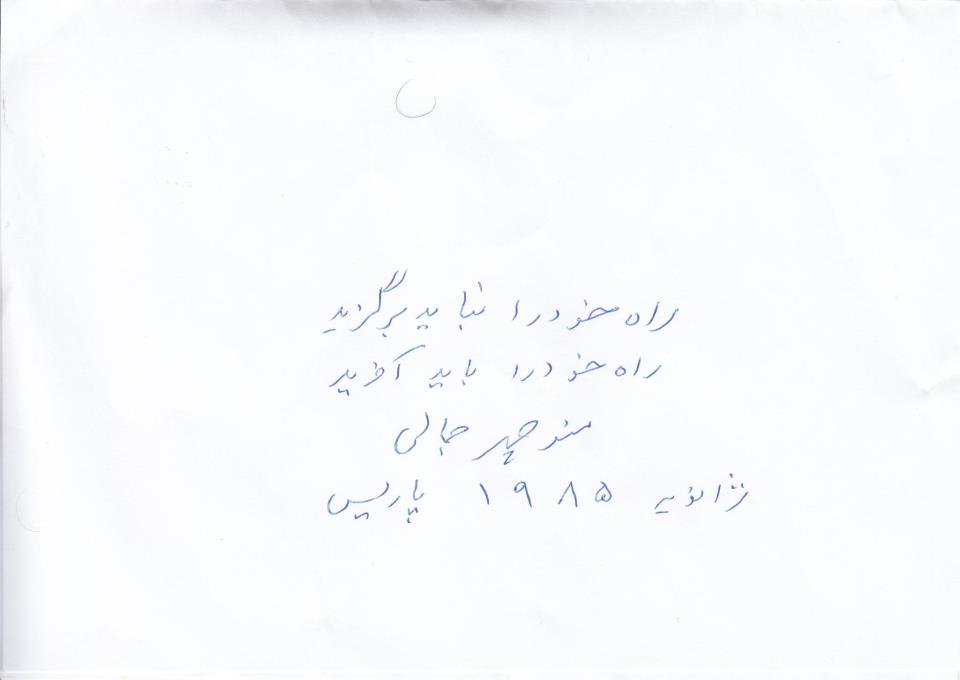 راه خود را نباید برگزید
راه خود را باید آفرید
منوچهر جمالی
ژانویه ۱۹۸۵ پاریس